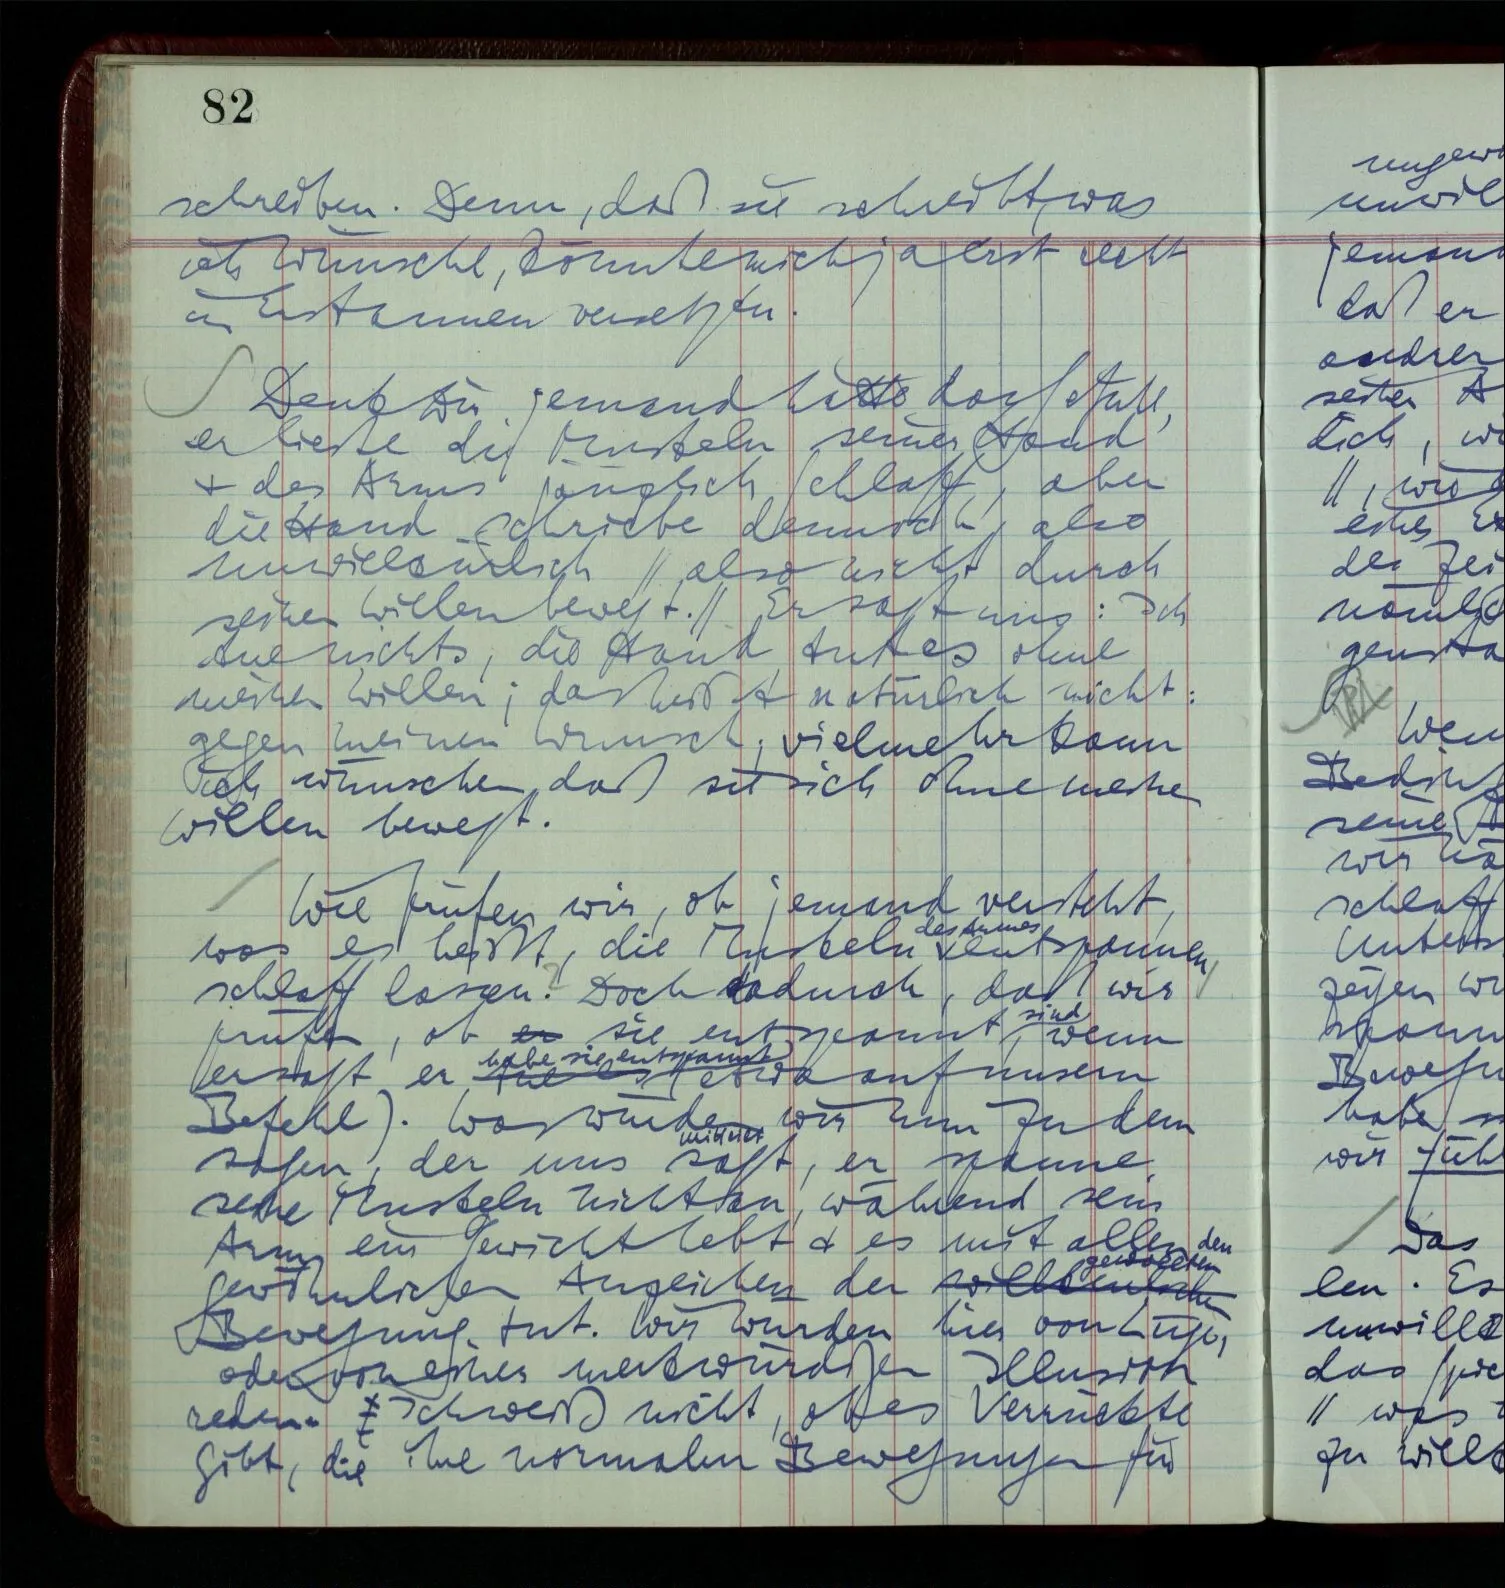 82
schreiben. Denn, daß sie schreibt, was
ich wünsche, könnte mich ja erst recht
in Erstaunen versetzen.
Denk Dir jemand hätte das Gefühl,
er ließe die Muskeln seiner Hand
+ des Arms gänzlich schlaff, aber
die Hand schriebe dennoch, also
unwillkürlich // also nicht durch
seinen Willen bewegt. // Er sagt uns: Ich
tue nichts, die Hand tut es ohne
meinen Willen; das heißt natürlich nicht:
gegen meinen Wunsch; vielmehr kann
ich wünschen, daß sie sich ohne meinen
Willen bewegt.
Wie prüfen wir, ob jemand versteht,
was es heißt, die Muskeln des Armes entspannen,
schlaff lassen? Doch dadurch, daß wir
prüfen, ob er sie entspannt sind, wenn
er sagt er habe sie entspannt (etwa auf unsern
Befehl). Was würden wir nun zu dem
sagen, der uns mitteilt sagt, er spanne
seine Muskeln nicht an, während sein
Arm ein Gewicht hebt & es mit allen den
gewöhnlichen Anzeichen der gewollten willkürlichen
Bewegung tut. Wir würden hier von Lüge,
oder von einer merkwürdigen Illusion
reden. Ich weiß nicht, ob es Verrückte
gibt, die ihre normalen Bewegungen für
ungew
unwill
jemand
daß er
andrer
seinen A
lich, w
//, wie
eines
der Zei
nämlic
gensta
Wen
Beding
seine
wir
schlaff
Unters
zeigen wi
spann
Bewegu
habe
wir fühl
Das
len. Es
unwillk
das
// was
zu willk